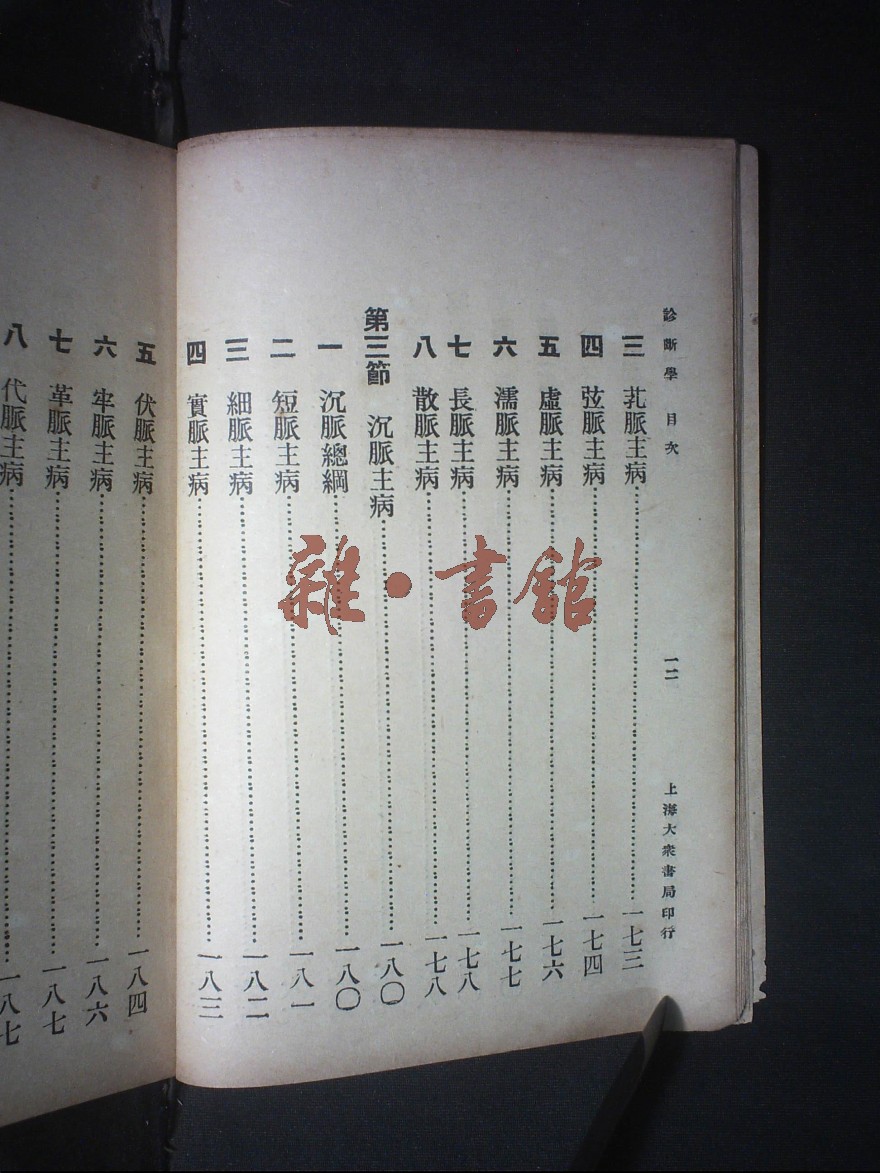 診斷學 目次 一二 上海大衆書局印行
三 芤脈主病 一七三
四 弦脈主病 一七四
五 虛脈主病 一七六
六 濡脈主病 一七七
七 長脈主病 一七八
八 散脈主病 一七八
第三節 沉脈主病 一八〇
一 沉脈總綱 一八〇
二 短脈主病 一八一
三 細脈主病 一八二
四 實脈主病 一八三
五 伏脈主病 一八四
六 牢脈主病 一八六
七 革脈主病 一八七
八 代脈主病 一八七
雜·書舘